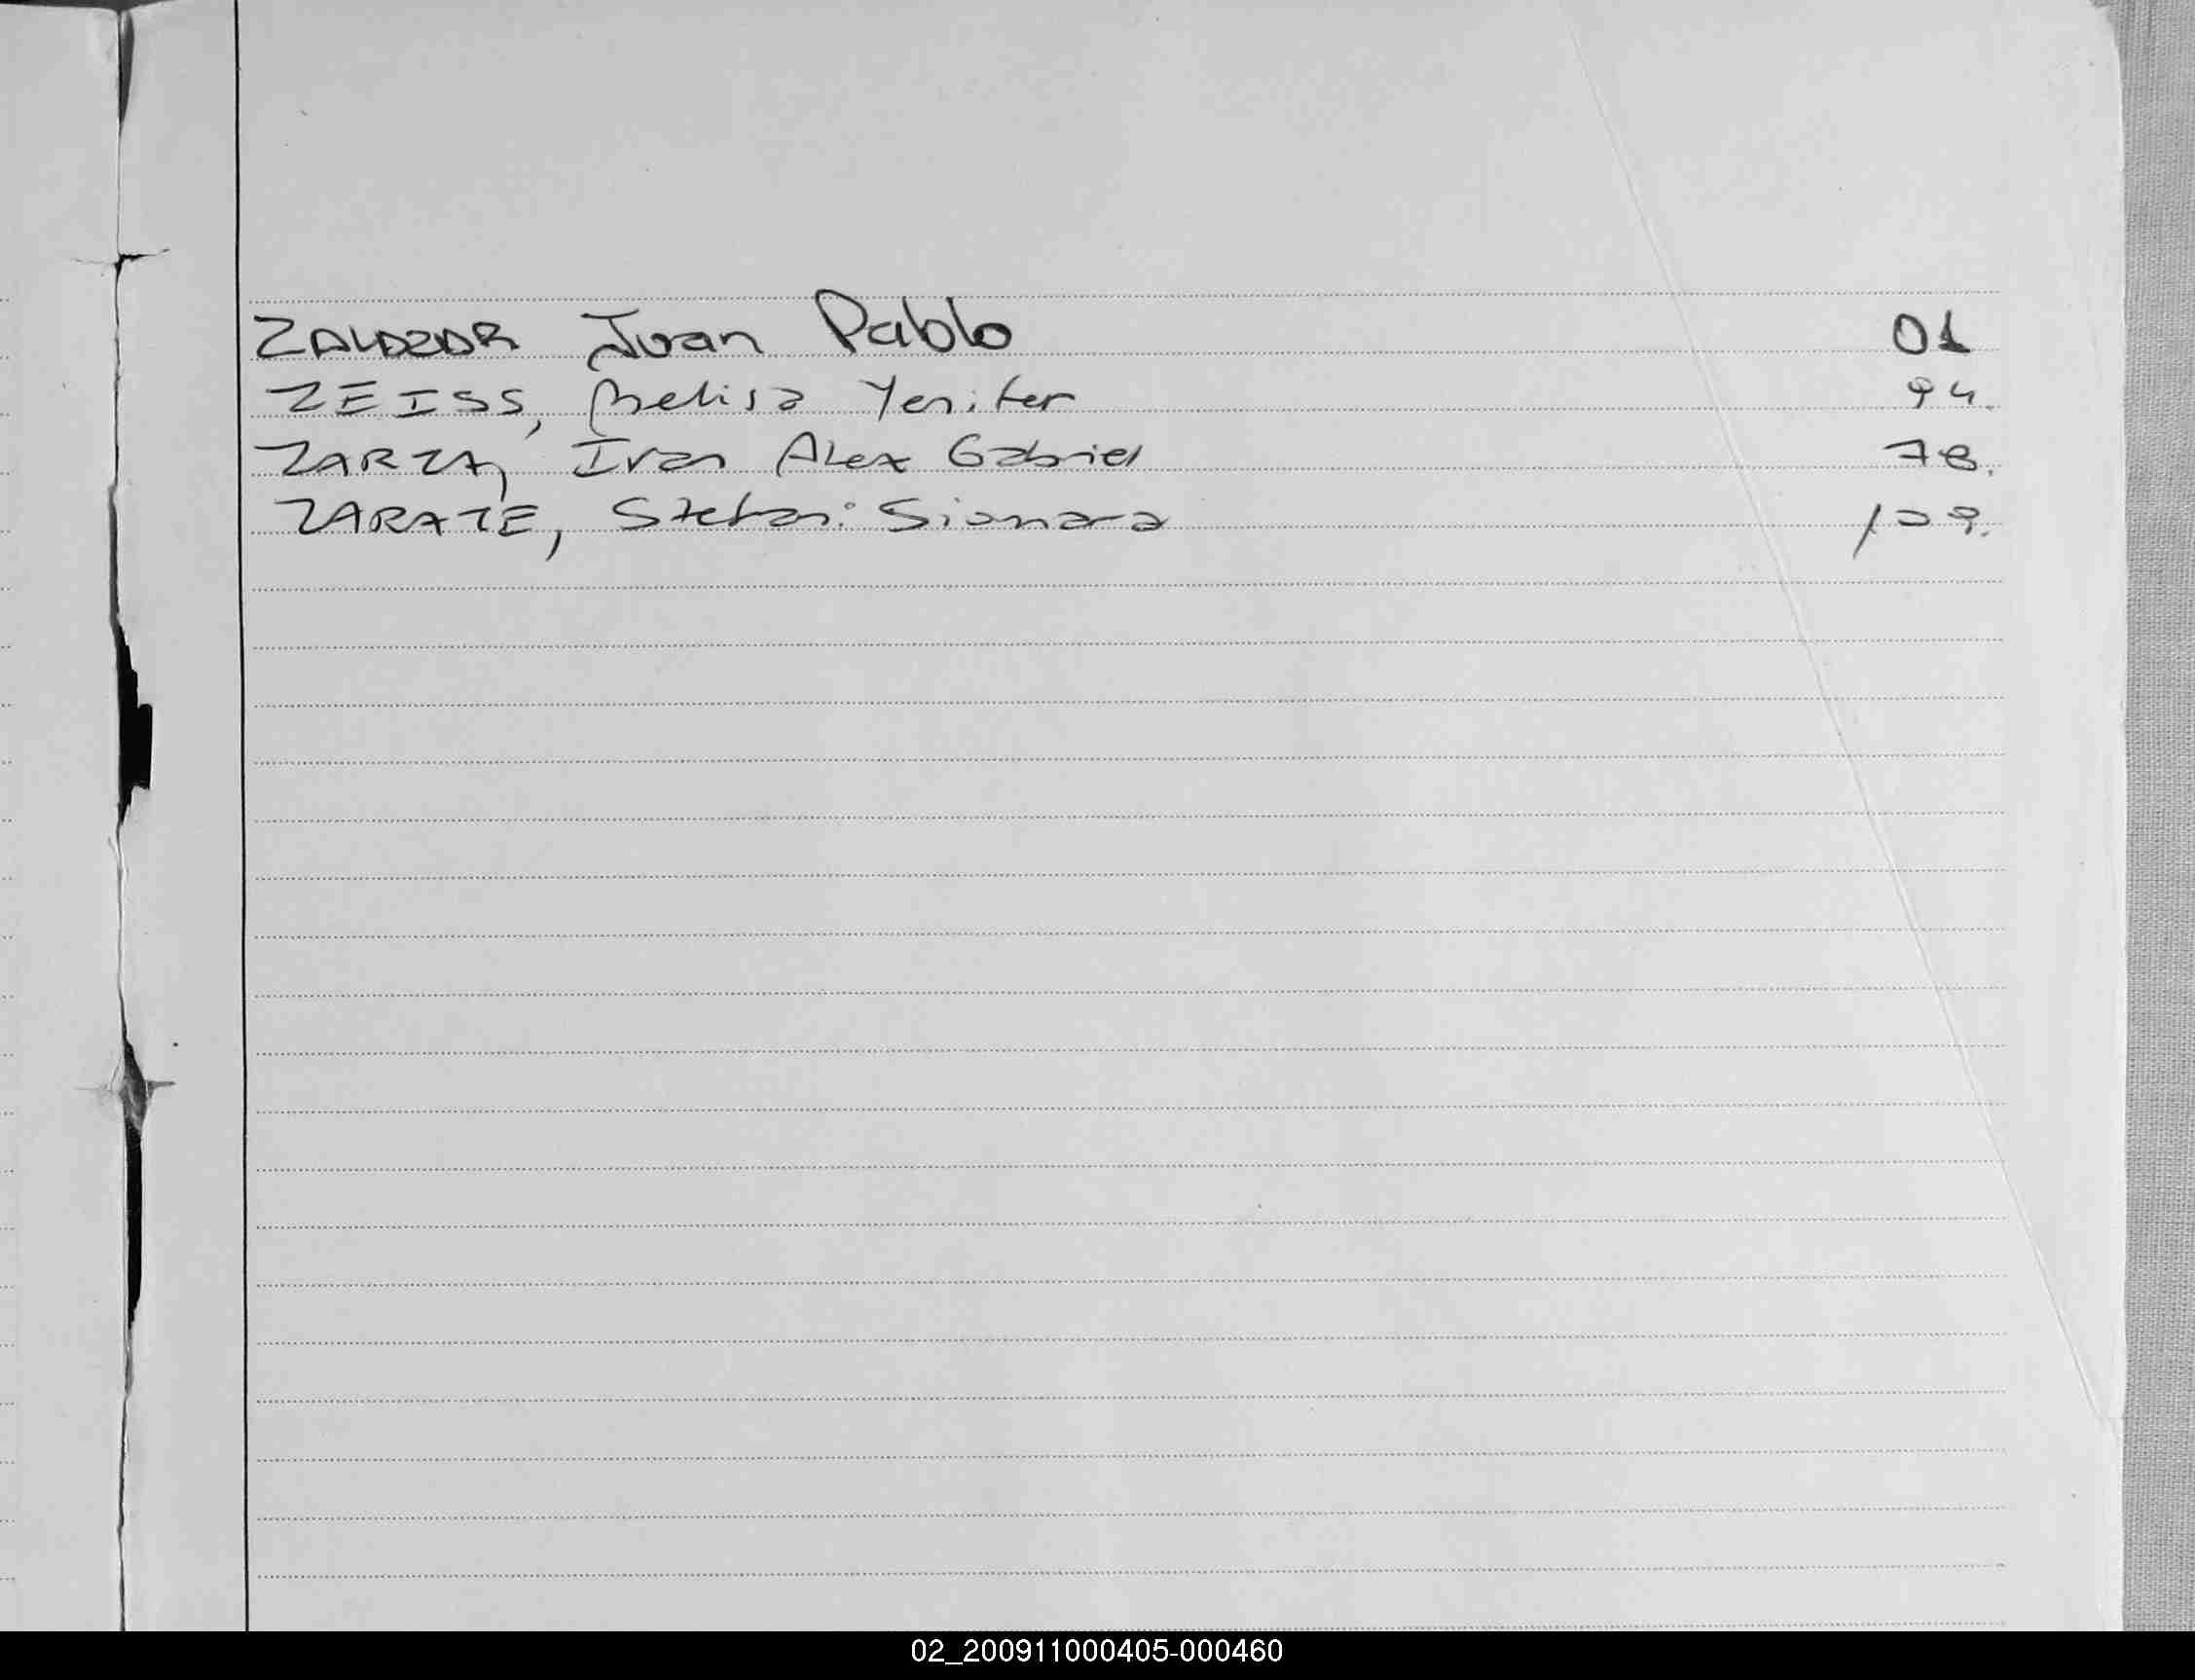 ZALDZAR Juan Pablo 01
ZEISS, Melisa Yenifer 94.
ZARZA, Ivan Alex Gabriel 78.
ZARATE, Stefani Siomara 109.
02_200911000405-000460